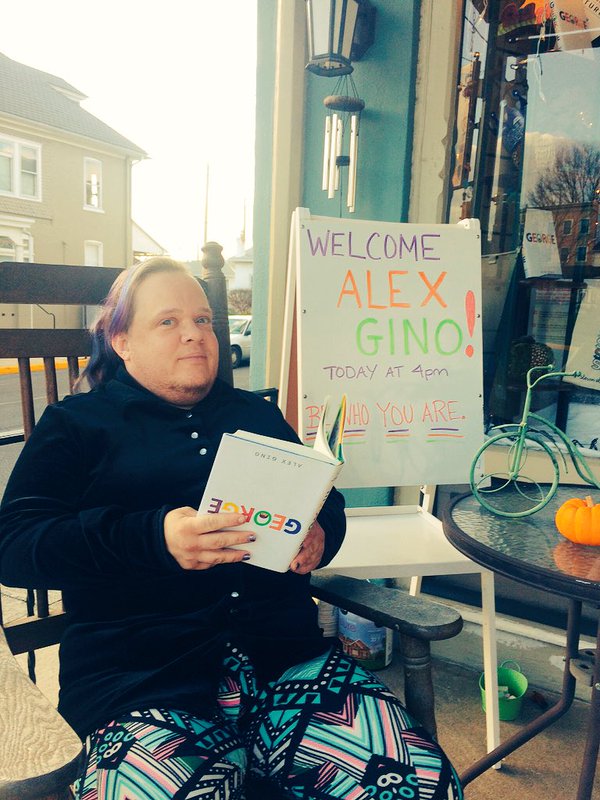 WELCOME
ALEX
GINO!
TODAY AT 4pm
BE WHO YOU ARE.
ALEX GINO
GEORGE
GEORGE
GEORGE